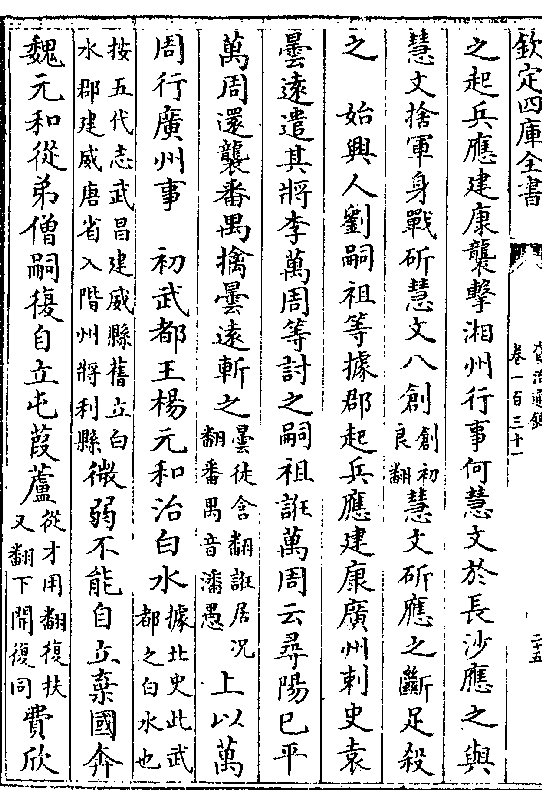 欽定四庫全書
資治通鑑
卷一百三十一
二十五
之起兵應建康襲擊湘州行事何慧文於長沙應之與
慧文捨軍身戰斫慧文八創創初良翻慧文斫應之斷足殺
之　始興人劉嗣祖等據郡起兵應建康廣州刺史袁
曇遠遣其將李萬周等討之嗣祖誑萬周云尋陽已平
萬周還襲番禺擒曇遠斬之曇徒含翻誑居况翻番禺音潘愚上以萬
周行廣州事　初武都王楊元和治白水據北史此武都之白水也
按五代志武昌建威縣舊立白水郡建威唐省入階州將利縣微弱不能自立棄國奔
魏元和從弟僧嗣復自立屯葭蘆從才用翻復扶又翻下開復同費欣